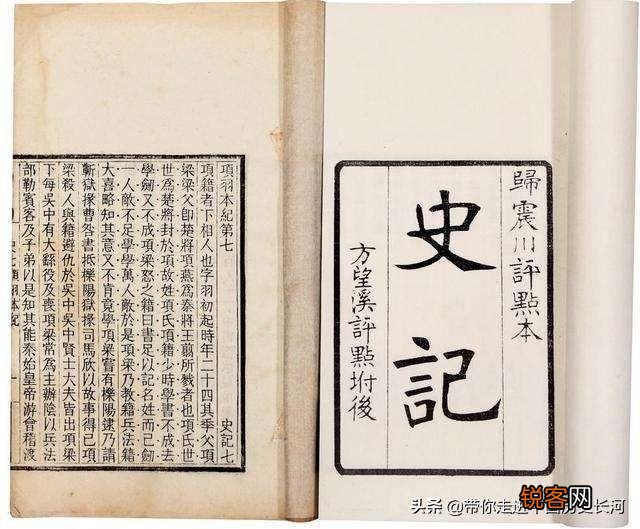 歸震川評點本
史記
方望溪評點坿後
項羽本紀第七 史記七
項籍者下相人也字羽初起時年二十四其季父項
梁梁父卽楚將項燕爲秦將王翦所戮者也項氏世
世爲楚將封於項故姓項氏項籍少時學書不成去
學劍又不成項梁怒之籍曰書足以記名姓而已劍
一人敵不足學學萬人敵於是項梁乃教籍兵法籍
大喜略知其意又不肯竟學項梁嘗有櫟陽逮乃請
蘄獄掾曹咎書抵櫟陽獄掾司馬欣以故事得已項
梁殺人與籍避仇於吳中吳中賢士大夫皆出項梁
下每吳中有大繇役及喪項梁常爲主辦陰以兵法
部勒賓客及子弟以是知其能秦始皇帝游會稽渡
头条 @带你走进 长河
锐客网